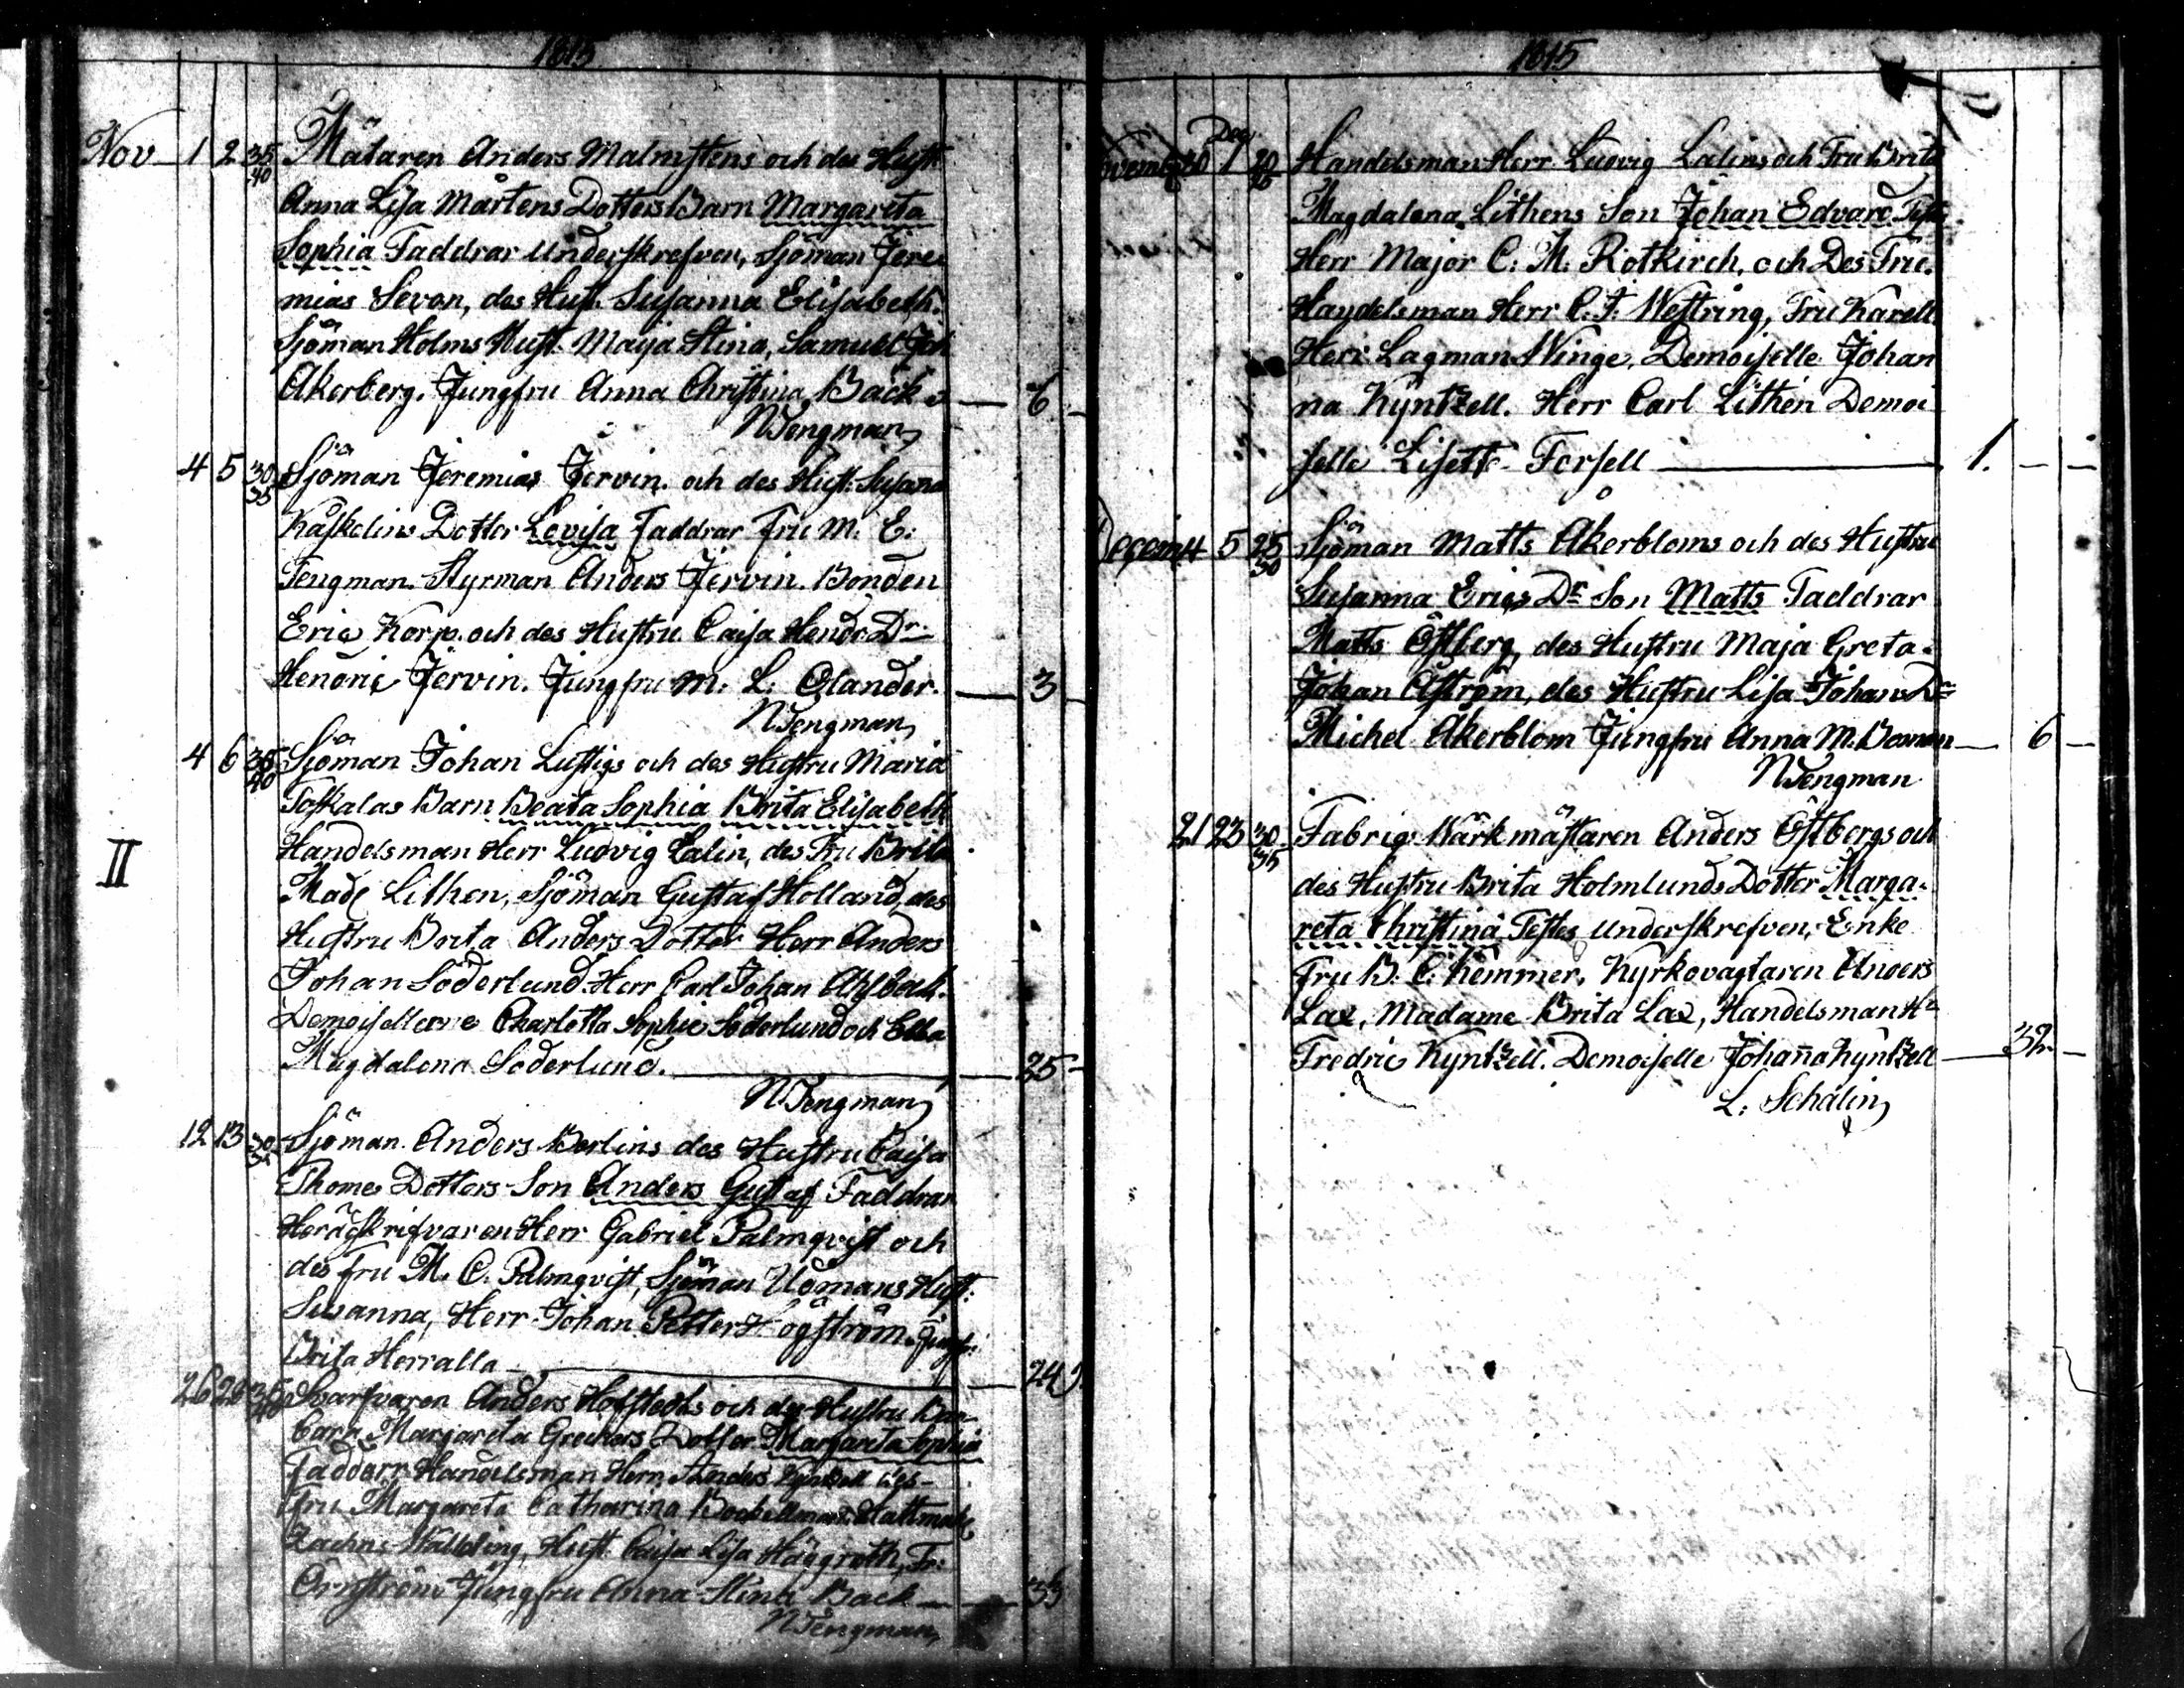 1815
Nov 1 2 35 40 Målaren Anders Malmstens och des Hust.
Anna Lisa Mårtens Dotters Barn Margareta
Sophia Faddrar Underskrefven, Sjöman Jere
mias Seven, des Hust. Susanna Elisabeth.
Sjöman Holms Hust. Maija Stina, Samuel
Åkerberg. Jungfru Anna Christina Back — 6 —
N Tengman
4 5 30 35 Sjöman Jeremias Jervin. och des Hust. Susana
Kaskelins Dotter Lovisa Faddrar Fru M. E:
Tengman. Styrman Anders Jervin. Bonden
Eric Korp. och des Hustru Caisa Hendr. Dr.
Hendric Jervin. Jungfru M: L: Olander. — 3 —
N Tengman
4 6 35 40 Sjöman Johan Lustigs och des Hustru Maria
Toskalas Barn Beata Sophia Brita Elisabeth
Handelsman Herr Ludvig Calin, des Fru Brita
Mad. Lithen, Sjöman Gustaf Holland, des
Hustru Brita Anders Dotter Herr Anders
Johan Söderlund. Herr Carl Johan Ahlbeck.
Demoisellerne Charlotta Sophie Söderlund och Ebba
Magdalena Söderlund. — 25 —
N Tengman
12 13 30 35 Sjöman Anders Berlins des Hustru Caisa
Thomes Dotters Son Anders Gustaf Faddrar
Häradsskrifvaren Herr Gabriel Palmqvist och
des Fru M. C. Palmqvist, Sjöman Udmans Hust:
Susanna, Herr Johan Petter Högström. Jungf:
Brita Herralla — 24
26 26 35 40 Svarfvaren Anders Hofstedts och des Hustru
Margareta Grechers Dotter Margareta Sophia
Faddrar Handelsman Herr Anders Kyntzell des
Fru Margareta Catharina Hattmak.
Zachr. Wallding, Hust. Caisa Lisa Häggroth,
Örnström Jungfru Anna Stina Back — 33
N Tengman
II
1815
Dec.
30 1 Handelsman Herr Ludvig Calins och Fru Brita
Magdalena Lithens Son Johan Edvard Testes
Herr Major C: M: Rotkirch, och Des Fru.
Handelsman Herr C. J. Westring, Fru Karell.
Herr Lagman Winge, Demoiselle Johan
na Kyntzell. Herr Carl Lithén Demoi
selle Lisette Forsell — 1. — —
Decem 4 5 25 30 Sjöman Matts Åkerbloms och des Hustru
Susanna Erics Dr Son Matts Faddrar
Matts Östberg, des Hustru Maja Greta.
Johan Åström, des Hustru Lisa Johans Dr
Michel Åkerblom Jungfru Anna M. Boman — 6 —
N Tengman
21 23 30 35 Fabriqs Wärkmästaren Anders Östbergs och
des Hustru Brita Holmlunds Dotter Marga-
reta Christina Testes Underskrefven, Enke
Fru B. C. Kemmer, Kyrkovagtaren Anders
Lax, Madame Brita Lax, Handelsman Hr
Fredric Kyntzell. Demoiselle Johanna Kyntzell — 32 —
L: Schalin